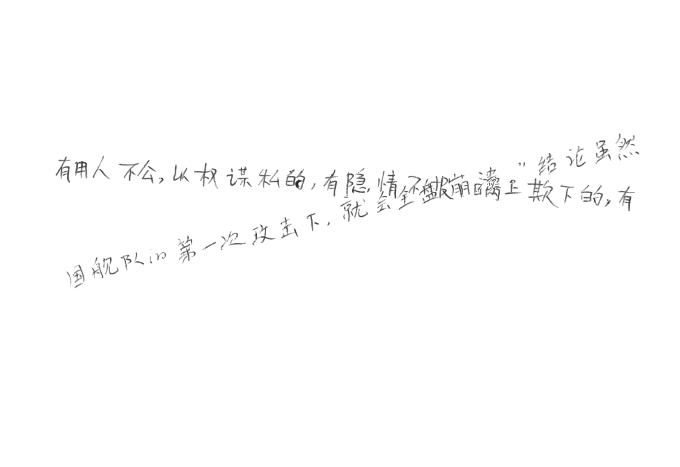 有用人不公,以权谋私的,有隐情不报瞒上欺下的,有
国舰队的第一次攻击下,就会全盘崩溃"结论虽然